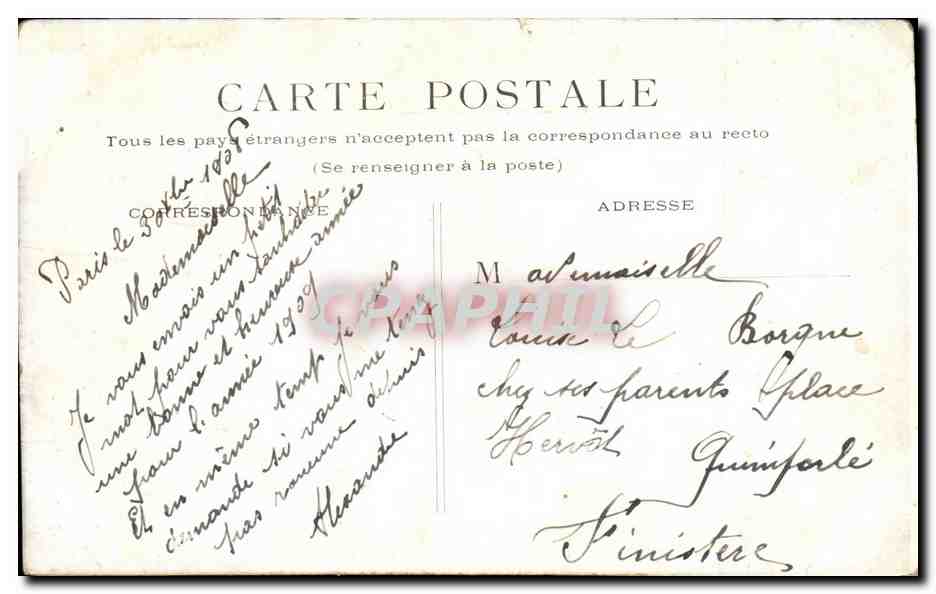 CARTE POSTALE
Tous les pays étrangers n'acceptent pas la correspondance au recto
(Se renseigner à la poste)
CORRESPONDANCE
ADRESSE
Paris le 30 Xbr 1908
Mademoiselle
Je vous envois un petit
mot pour vous souhaitre
une bonne et heureuse année
pour l'année 1909
Et en même temp je vous
demande si vous me tenez
pas rancune depuis
Alexandre
Mademoiselle
Louise Le Borgne
chez ses parents place
Hervôt Quimperlé
Finistere
CPAPHIL